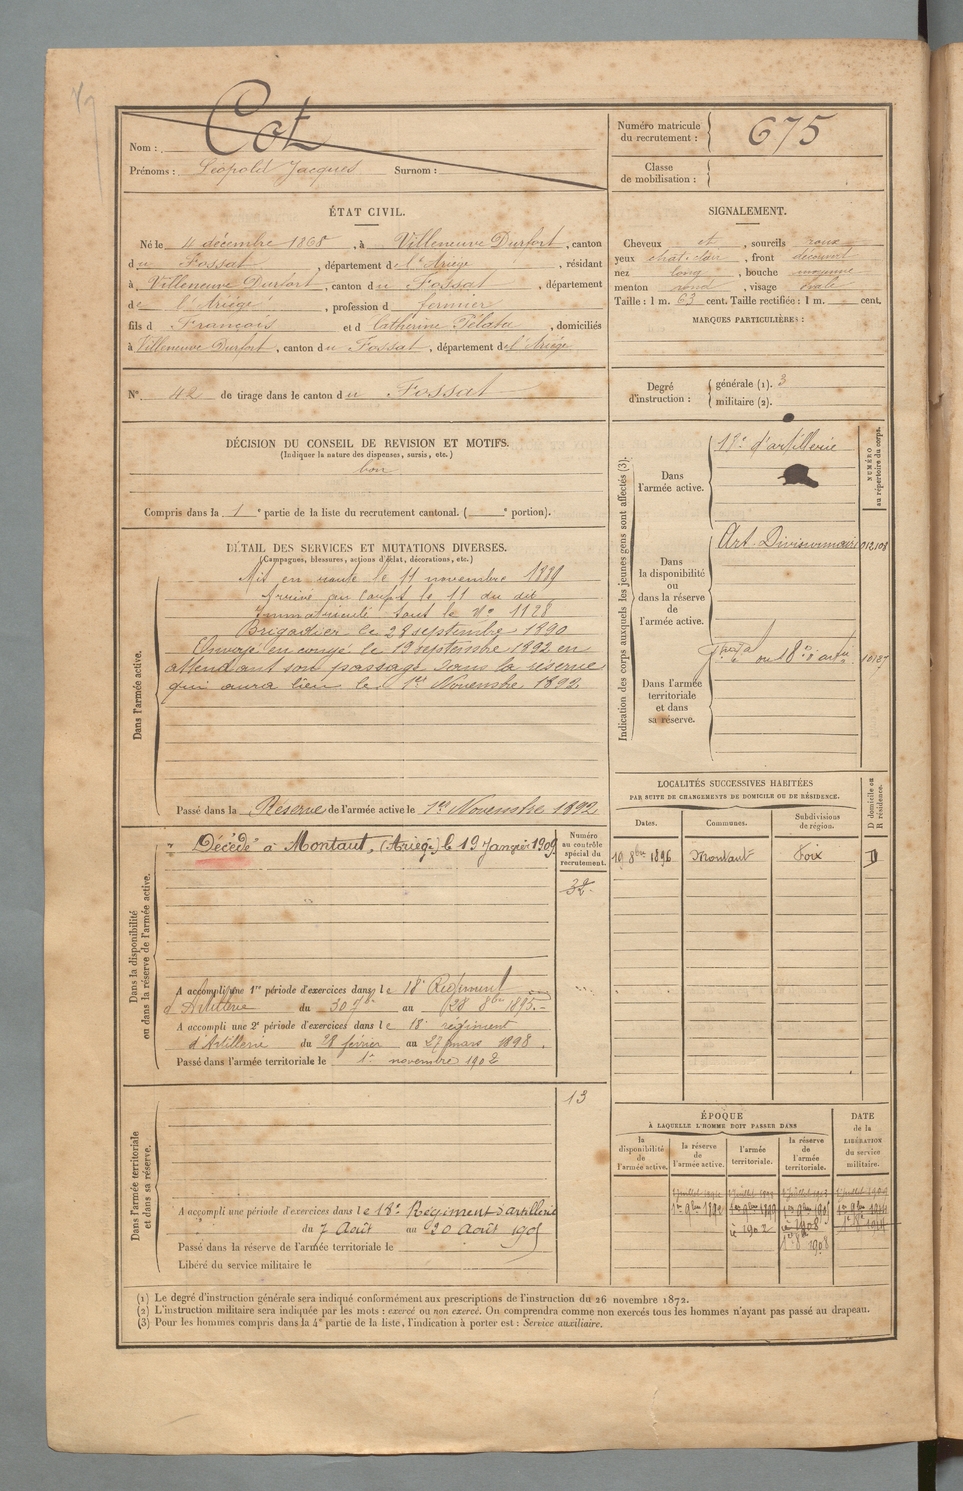 Nom : Cot
Prénoms : Léopold Jacques Surnom :
Numéro matricule du recrutement : 675
Classe de mobilisation :
ÉTAT CIVIL.
Né le 4 décembre 1868, à Villeneuve Durfort, canton
du Fossat, département de l'Ariège, résidant
à Villeneuve Durfort, canton du Fossat, département
de l'Ariège, profession de fermier
fils d François et d Catherine, domiciliés
à Villeneuve Durfort, canton du Fossat, département de l'Ariège
N° 42 de tirage dans le canton du Fossat
SIGNALEMENT.
Cheveux et, sourcils roux
yeux, front découvert
nez long, bouche moyenne
menton rond, visage ovale
Taille : 1 m. 63 cent. Taille rectifiée : 1 m. cent.
MARQUES PARTICULIÈRES :
Degré d'instruction : générale (1). 3
militaire (2).
DÉCISION DU CONSEIL DE REVISION ET MOTIFS.
(Indiquer la nature des dispenses, sursis, etc.)
bon
Compris dans la 1e partie de la liste du recrutement cantonal. ( e portion).
DÉTAIL DES SERVICES ET MUTATIONS DIVERSES.
(Campagnes, blessures, actions d'éclat, décorations, etc.)
Dans l'armée active.
Mis en route le 11 novembre 1889
Arrivé au corps le 11 du dit
Immatriculé sous le N° 1128
Brigadier le 28 septembre 1890
Envoyé en congé le 19 septembre 1892 en
attendant son passage dans la réserve
qui aura lieu le 1er Novembre 1892.
Passé dans la Réserve de l'armée active le 1er Novembre 1892
Indication des corps auxquels les jeunes gens sont affectés (3).
NUMÉRO au répertoire du corps.
Dans l'armée active.
18e d'artillerie
Dans la disponibilité ou dans la réserve de l'armée active.
Art. Divisionnaire
Dans l'armée territoriale et dans sa réserve.
Dans la disponibilité ou dans la réserve de l'armée active.
Décédé à Montaut, (Ariège) le 19 Janvier 1909
Numéro au contrôle spécial du recrutement.
32
A accompli une 1re période d'exercices dans le 18e Régiment
d'Artillerie du 30 7bre au 28 8bre 1895.
A accompli une 2e période d'exercices dans le 18e régiment
d'Artillerie du 28 février au 27 mars 1898.
Passé dans l'armée territoriale le 1er novembre 1902
LOCALITÉS SUCCESSIVES HABITÉES
PAR SUITE DE CHANGEMENTS DE DOMICILE OU DE RÉSIDENCE.
Dates. Communes. Subdivisions de région. D domicile ou R résidence.
19 8bre 1896 Montaut Foix D
Dans l'armée territoriale et dans sa réserve.
13
A accompli une période d'exercices dans le 18e Régiment d'artillerie
du 7 Août au 20 Août 1905
Passé dans la réserve de l'armée territoriale le
Libéré du service militaire le
ÉPOQUE
À LAQUELLE L'HOMME DOIT PASSER DANS
la disponibilité de l'armée active.
la réserve de l'armée active.
l'armée territoriale.
la réserve de l'armée territoriale.
DATE de la LIBÉRATION du service militaire.
1er 9bre 1892
1902
1908
(1) Le degré d'instruction générale sera indiqué conformément aux prescriptions de l'instruction du 26 novembre 1872.
(2) L'instruction militaire sera indiquée par les mots : exercé ou non exercé. On comprendra comme non exercés tous les hommes n'ayant pas passé au drapeau.
(3) Pour les hommes compris dans la 4e partie de la liste, l'indication à porter est : Service auxiliaire.